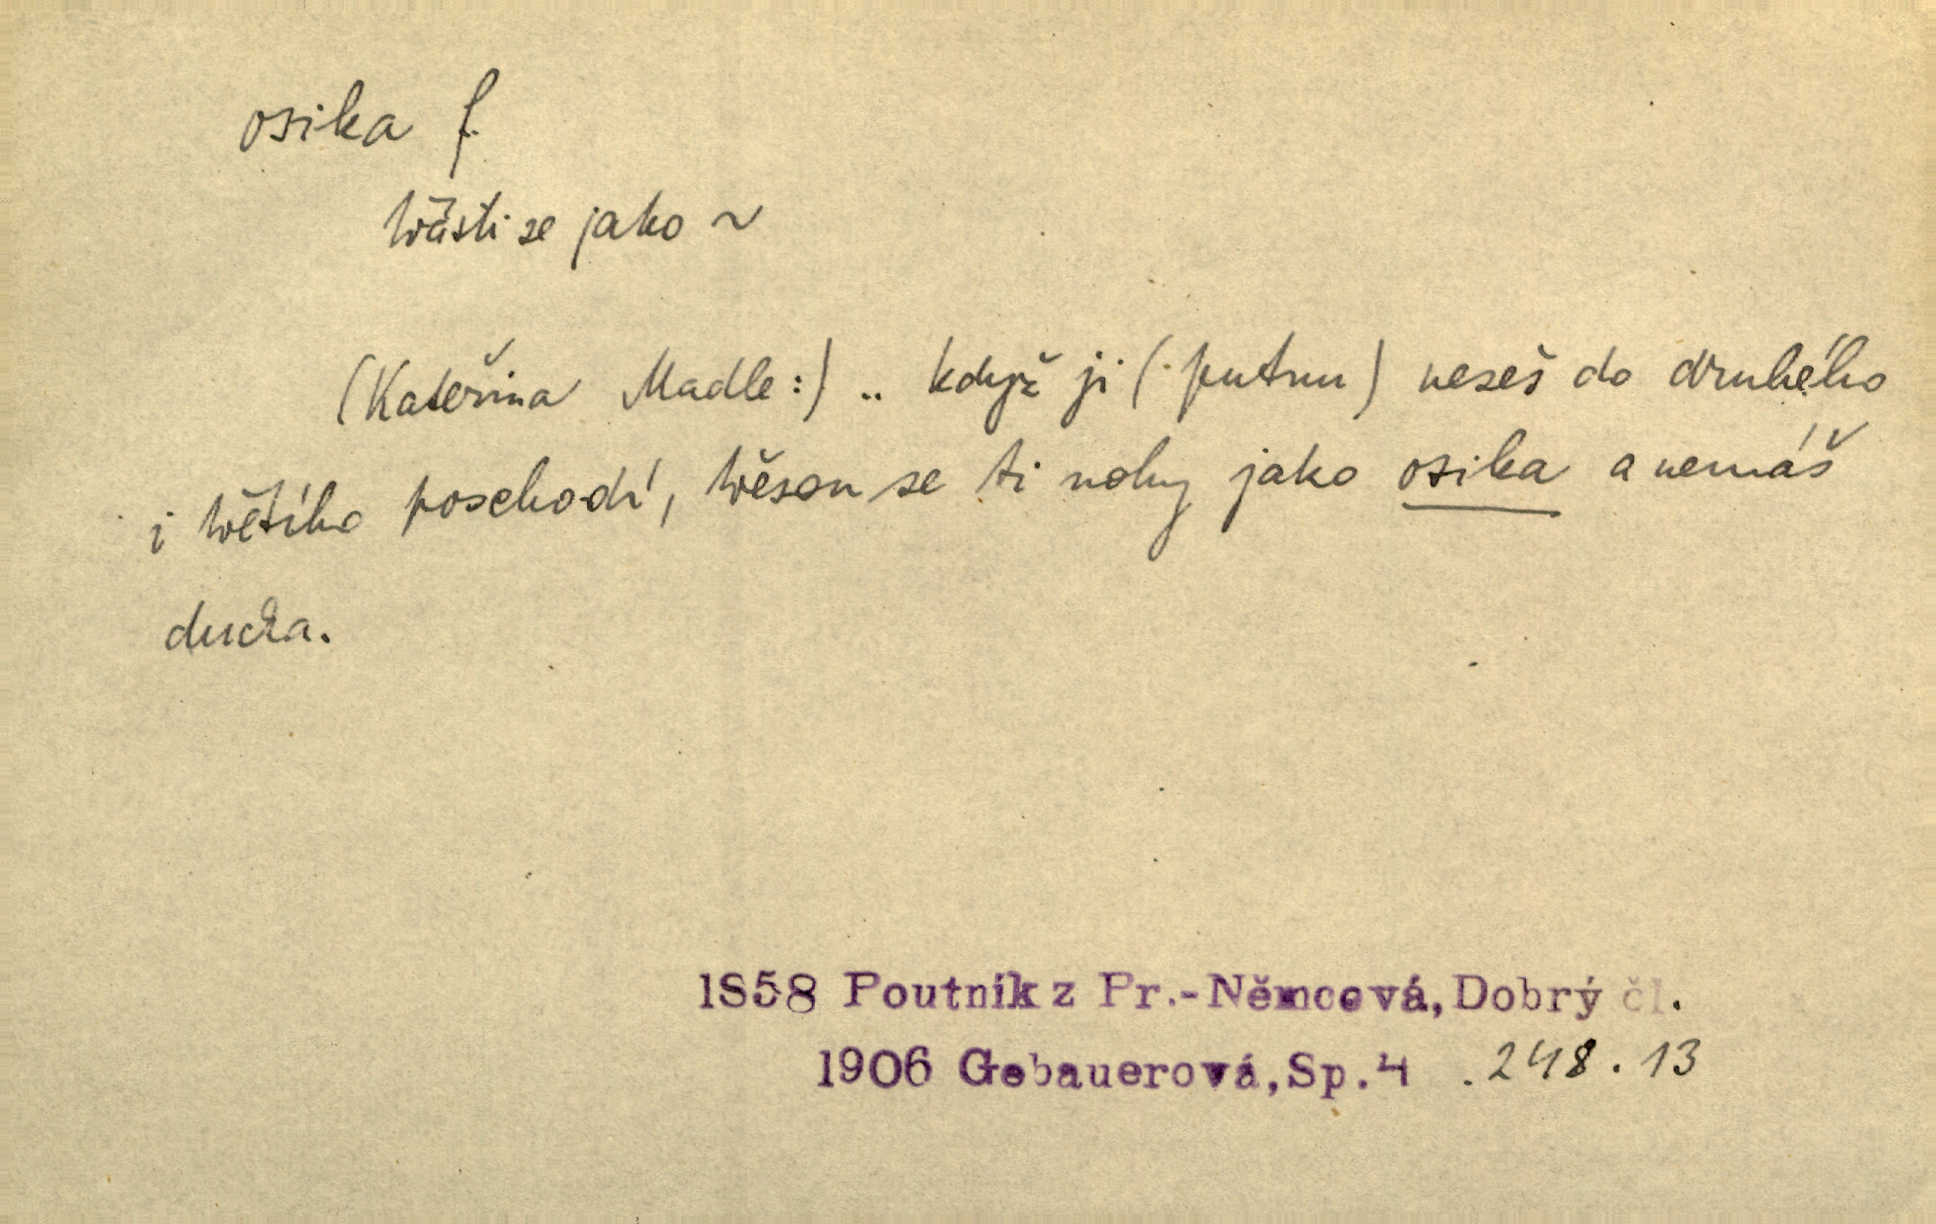 osika f.
třásti se jako ~
(Kateřina Madle:) .. když ji (: putnu) neseš do druhého
i třetího poschodí, třesou se ti nohy jako osika a nemáš
ducha.
1858 Poutník z Pr.-Němcová, Dobrý čl.
1906 Gebauerová, Sp. 4 . 248 . 13